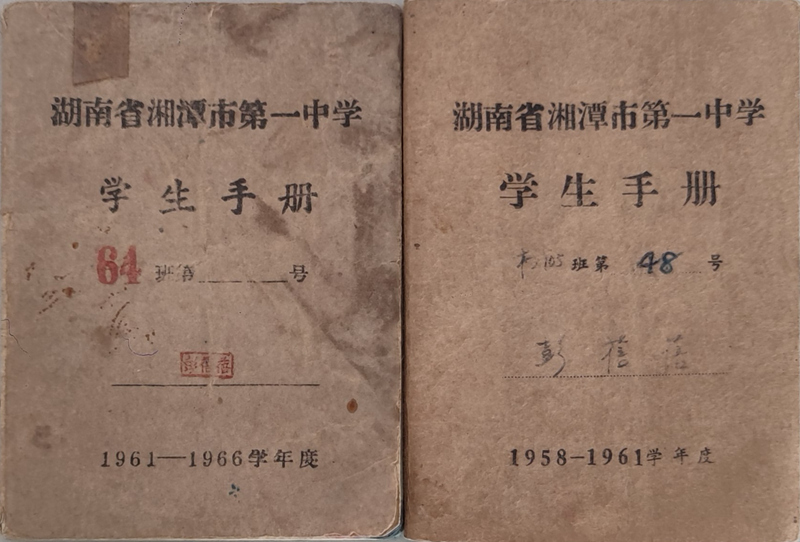 湖南省湘潭市第一中学
学生手册
64 班第 号
1961—1966学年度
湖南省湘潭市第一中学
学生手册
班第 48 号
彭信
1958-1961学年度